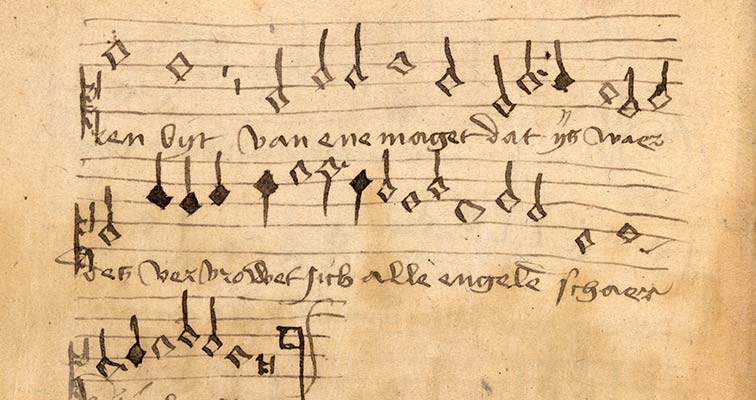 ken byt van ene maget dat ys waer
des vervrowet sich alle engele schaer